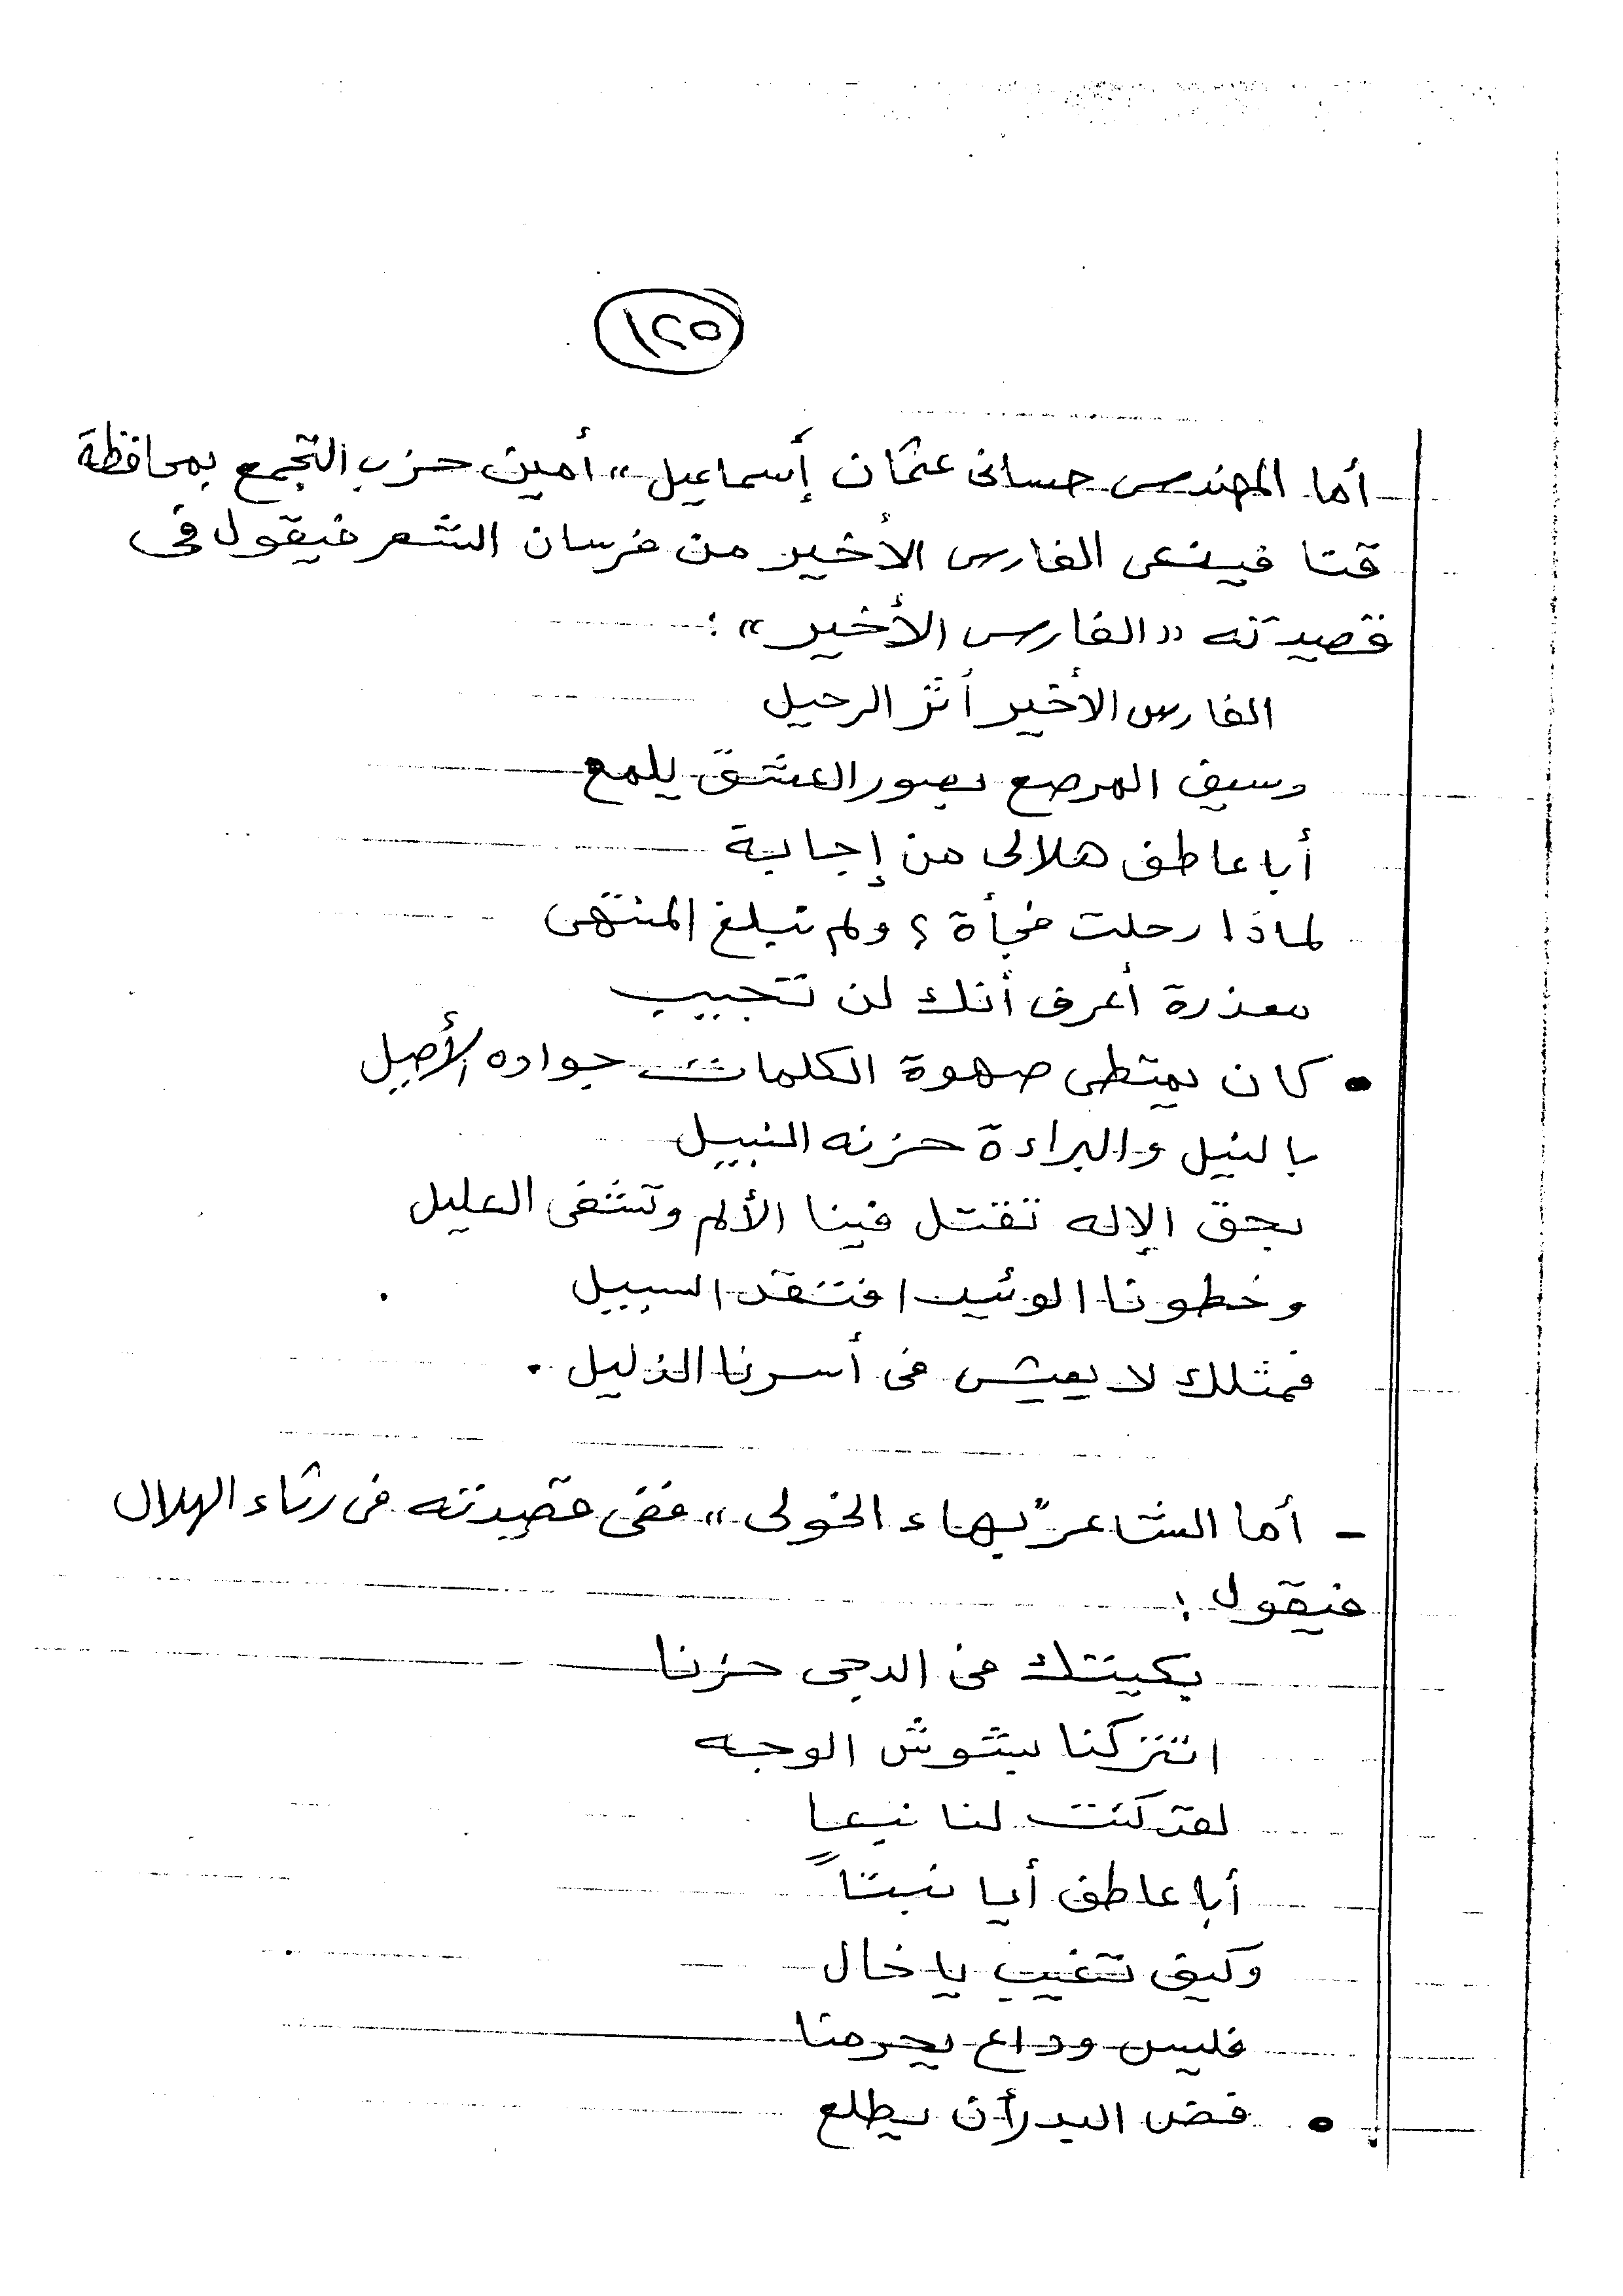 ١٢٥
أما المهندس حسانى عثمان إسماعيل» أمين حزب التجمع بمحافظة
قنا فينعى الفارس الأخير من فرسان الشعر فيقول فى
قصيدته «الفارس الأخير» :
الفارس الأخير أثر الرحيل
وسيف المرصع بصور العشق يلمع
أبا عاطف هلالى من إجابة
لماذا رحلت فجأة ؟ ولم تبلغ المنتهى
معذرة أعرف أنك لن تجيب
• كان يمتطى صهوة الكلمات جواده الأصيل
بالنيل والبراءة حزنه النبيل
بحق الإله تقتل فينا الألم وتشفى العليل
وخطونا الوئيد افتقد السبيل
فمثلك لا يعيش فى أسرنا الذليل .
- أما الشاعر "بهاء الخولى» ففى قصيدته فى رثاء الهلال
فيقول :
بكيتك فى الدجى حزنا
اتتركنا بشوش الوجه
لقد كنت لنا نبعاً
أبا عاطف أيا نبتاً
وكيف تغيب يا خال
فليس وداع يحرمنا
• فض البدر أن يطلع